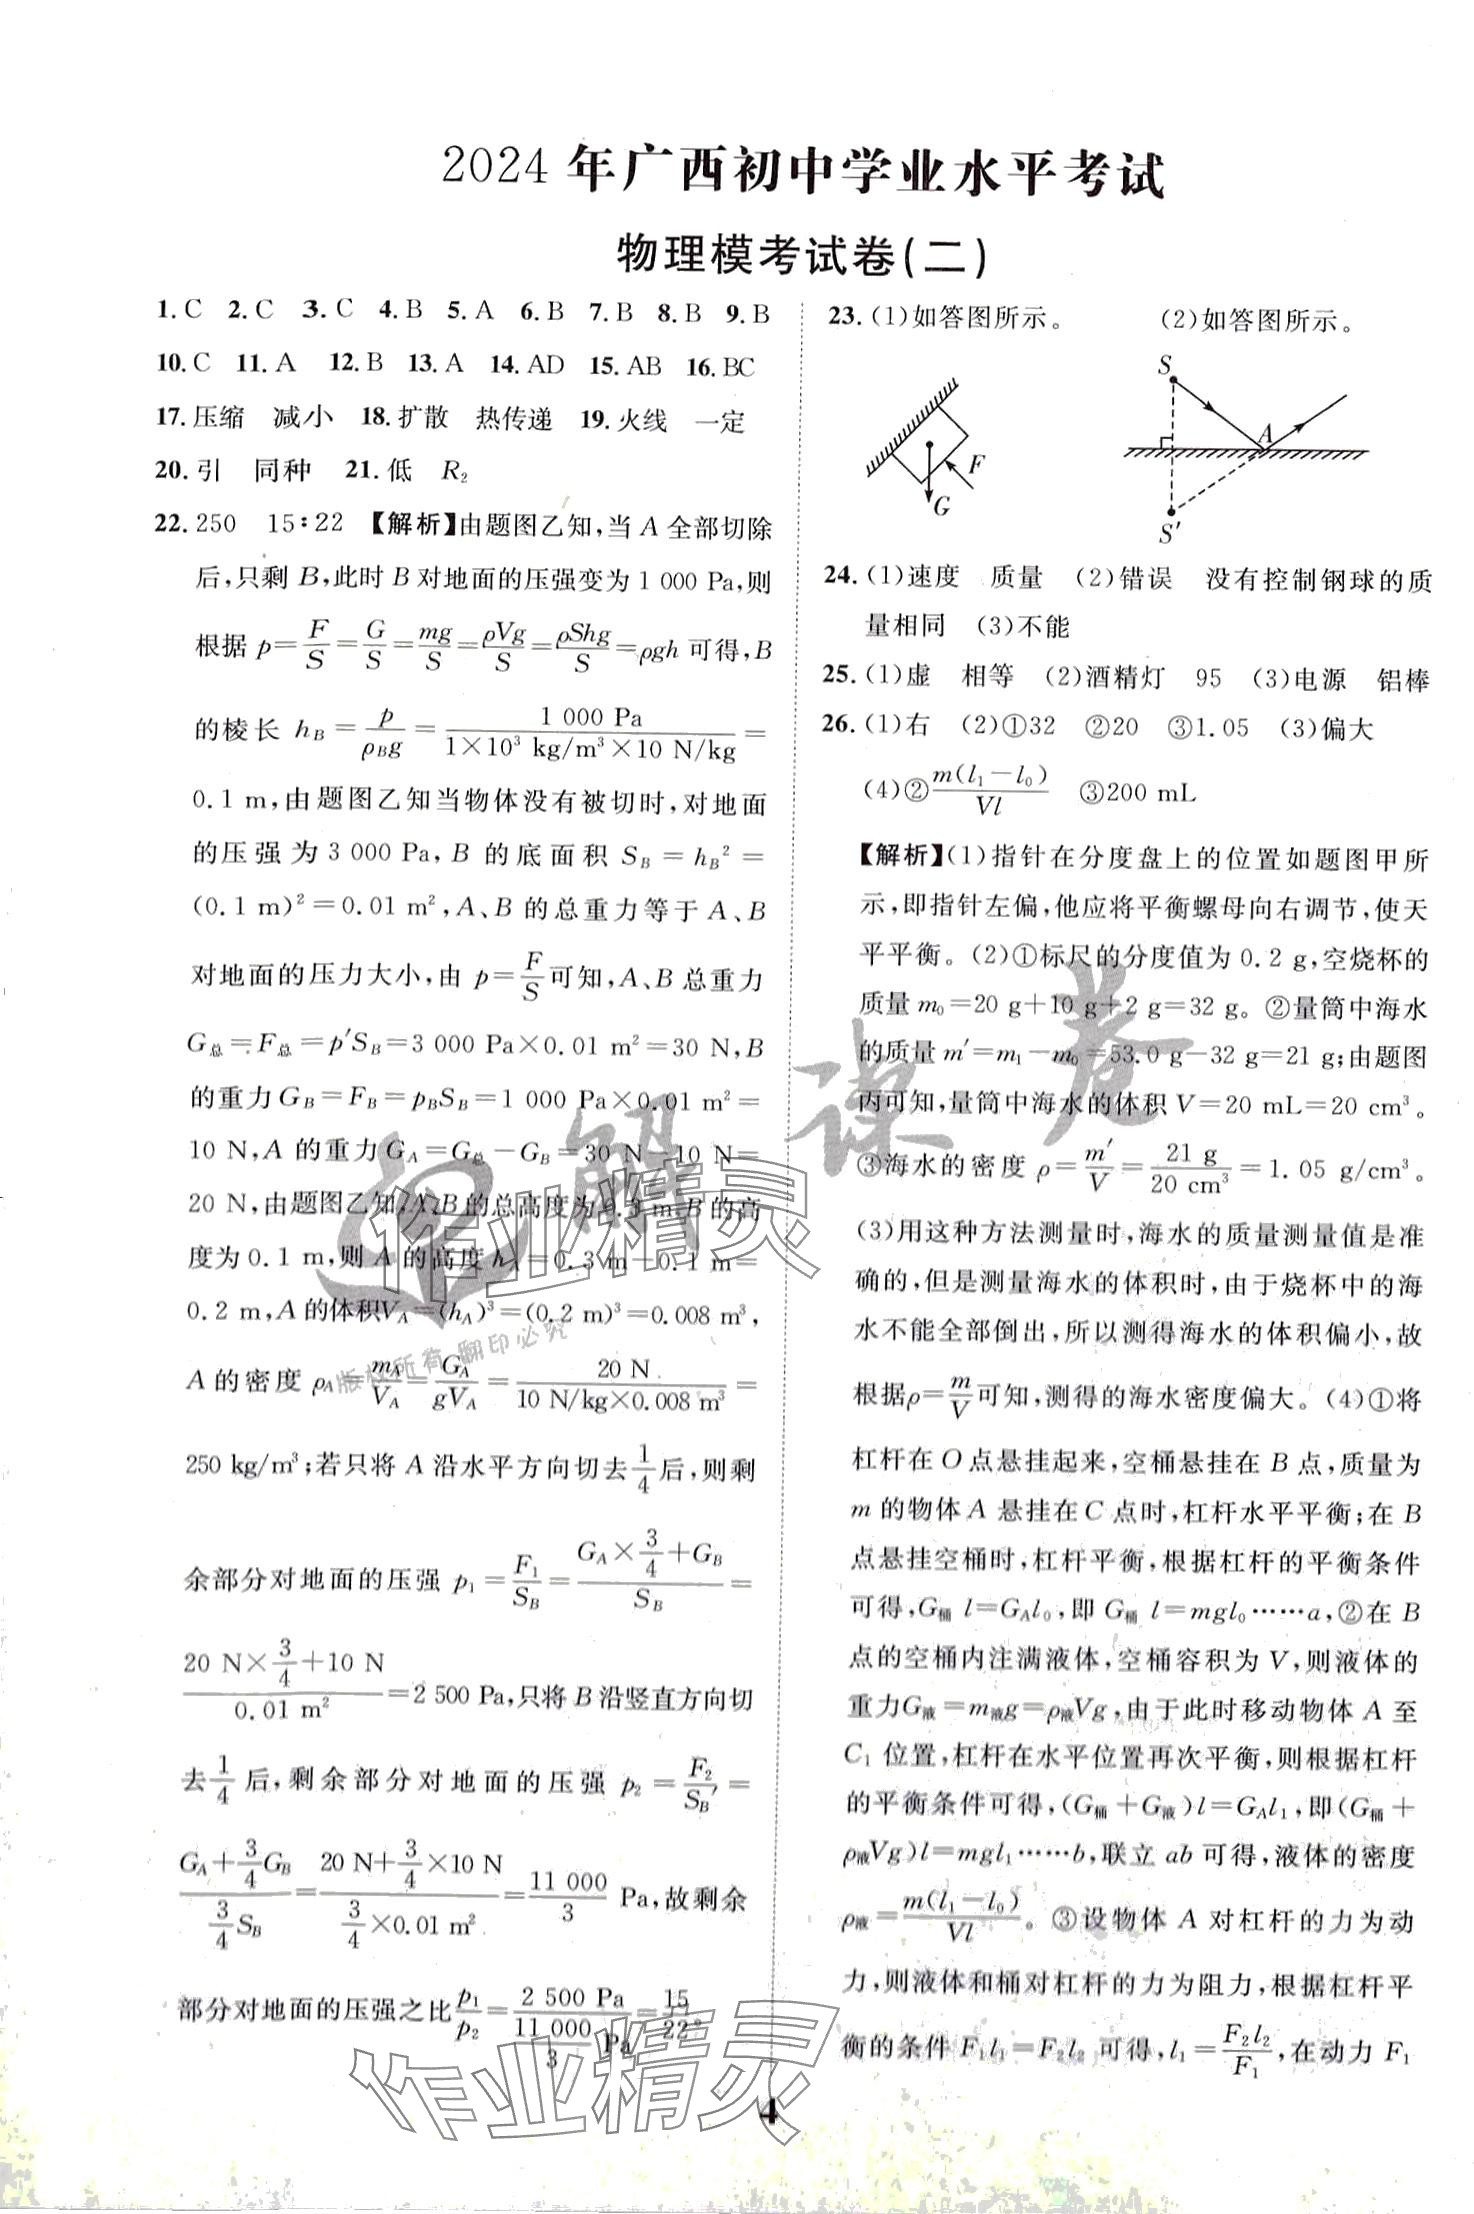 2024 年广西初中学业水平考试
物理模考试卷(二)
1. C 2. C 3. C 4. B 5. A 6. B 7. B 8. B 9. B
10. C 11. A 12. B 13. A 14. AD 15. AB 16. BC
17. 压缩 减小 18. 扩散 热传递 19. 火线 一定
20. 引 同种 21. 低 R₂
22. 250 15∶22 【解析】由题图乙知,当 A 全部切除
后,只剩 B,此时 B 对地面的压强变为 1 000 Pa,则
根据 p=F/S=G/S=mg/S=ρVg/S=ρShg/S=ρgh 可得,B
的棱长 h_B = p/(ρ_B g) = 1 000 Pa/(1×10³ kg/m³×10 N/kg) =
0.1 m,由题图乙知当物体没有被切时,对地面
的压强为 3 000 Pa,B 的底面积 S_B = h_B² =
(0.1 m)²=0.01 m²,A、B 的总重力等于 A、B
对地面的压力大小,由 p=F/S可知,A、B 总重力
G总=F总=p′S_B=3 000 Pa×0.01 m²=30 N,B
的重力 G_B=F_B=p_B S_B=1 000 Pa×0.01 m²=
10 N,A 的重力 G_A=G总-G_B=30 N-10 N=
20 N,由题图乙知,A、B的总高度为0.3 m,B的高
度为 0.1 m,则 A 的高度 h_A=0.3 m-0.1 m=
0.2 m,A 的体积V_A=(h_A)³=(0.2 m)³=0.008 m³,
A 的密度 ρ_A=m_A/V_A=G_A/(gV_A)=20 N/(10 N/kg×0.008 m³)=
250 kg/m³;若只将 A 沿水平方向切去1/4后,则剩
余部分对地面的压强 p₁=F₁/S_B=(G_A×3/4+G_B)/S_B=
(20 N×3/4+10 N)/(0.01 m²)=2 500 Pa,只将 B 沿竖直方向切
去1/4后,剩余部分对地面的压强 p₂=F₂/S_B′=
(G_A+3/4G_B)/(3/4S_B)=(20 N+3/4×10 N)/(3/4×0.01 m²)=11 000/3 Pa,故剩余
部分对地面的压强之比p₁/p₂=2 500 Pa/(11 000/3 Pa)=15/22。
23. (1)如答图所示。 (2)如答图所示。
F
G
S
A
S′
24. (1)速度 质量 (2)错误 没有控制钢球的质
量相同 (3)不能
25. (1)虚 相等 (2)酒精灯 95 (3)电源 铝棒
26. (1)右 (2)①32 ②20 ③1.05 (3)偏大
(4)②m(l₁-l₀)/Vl ③200 mL
【解析】(1)指针在分度盘上的位置如题图甲所
示,即指针左偏,他应将平衡螺母向右调节,使天
平平衡。(2)①标尺的分度值为 0.2 g,空烧杯的
质量 m₀=20 g+10 g+2 g=32 g。②量筒中海水
的质量 m′=m₁-m₀=53.0 g-32 g=21 g;由题图
丙可知,量筒中海水的体积 V=20 mL=20 cm³。
③海水的密度 ρ=m′/V=21 g/20 cm³=1.05 g/cm³。
(3)用这种方法测量时,海水的质量测量值是准
确的,但是测量海水的体积时,由于烧杯中的海
水不能全部倒出,所以测得海水的体积偏小,故
根据ρ=m/V可知,测得的海水密度偏大。(4)①将
杠杆在 O 点悬挂起来,空桶悬挂在 B 点,质量为
m 的物体 A 悬挂在 C 点时,杠杆水平平衡;在 B
点悬挂空桶时,杠杆平衡,根据杠杆的平衡条件
可得,G桶 l=G_A l₀,即 G桶 l=mgl₀……a,②在 B
点的空桶内注满液体,空桶容积为 V,则液体的
重力G液=m液g=ρ液Vg,由于此时移动物体 A 至
C₁ 位置,杠杆在水平位置再次平衡,则根据杠杆
的平衡条件可得,(G桶+G液)l=G_A l₁,即(G桶+
ρ液Vg)l=mgl₁……b,联立 ab 可得,液体的密度
ρ液=m(l₁-l₀)/Vl。③设物体 A 对杠杆的力为动
力,则液体和桶对杠杆的力为阻力,根据杠杆平
衡的条件 F₁l₁=F₂l₂ 可得,l₁=F₂l₂/F₁,在动力 F₁
4
解谋卷
版权所有 翻印必究
作业精灵
作业精灵